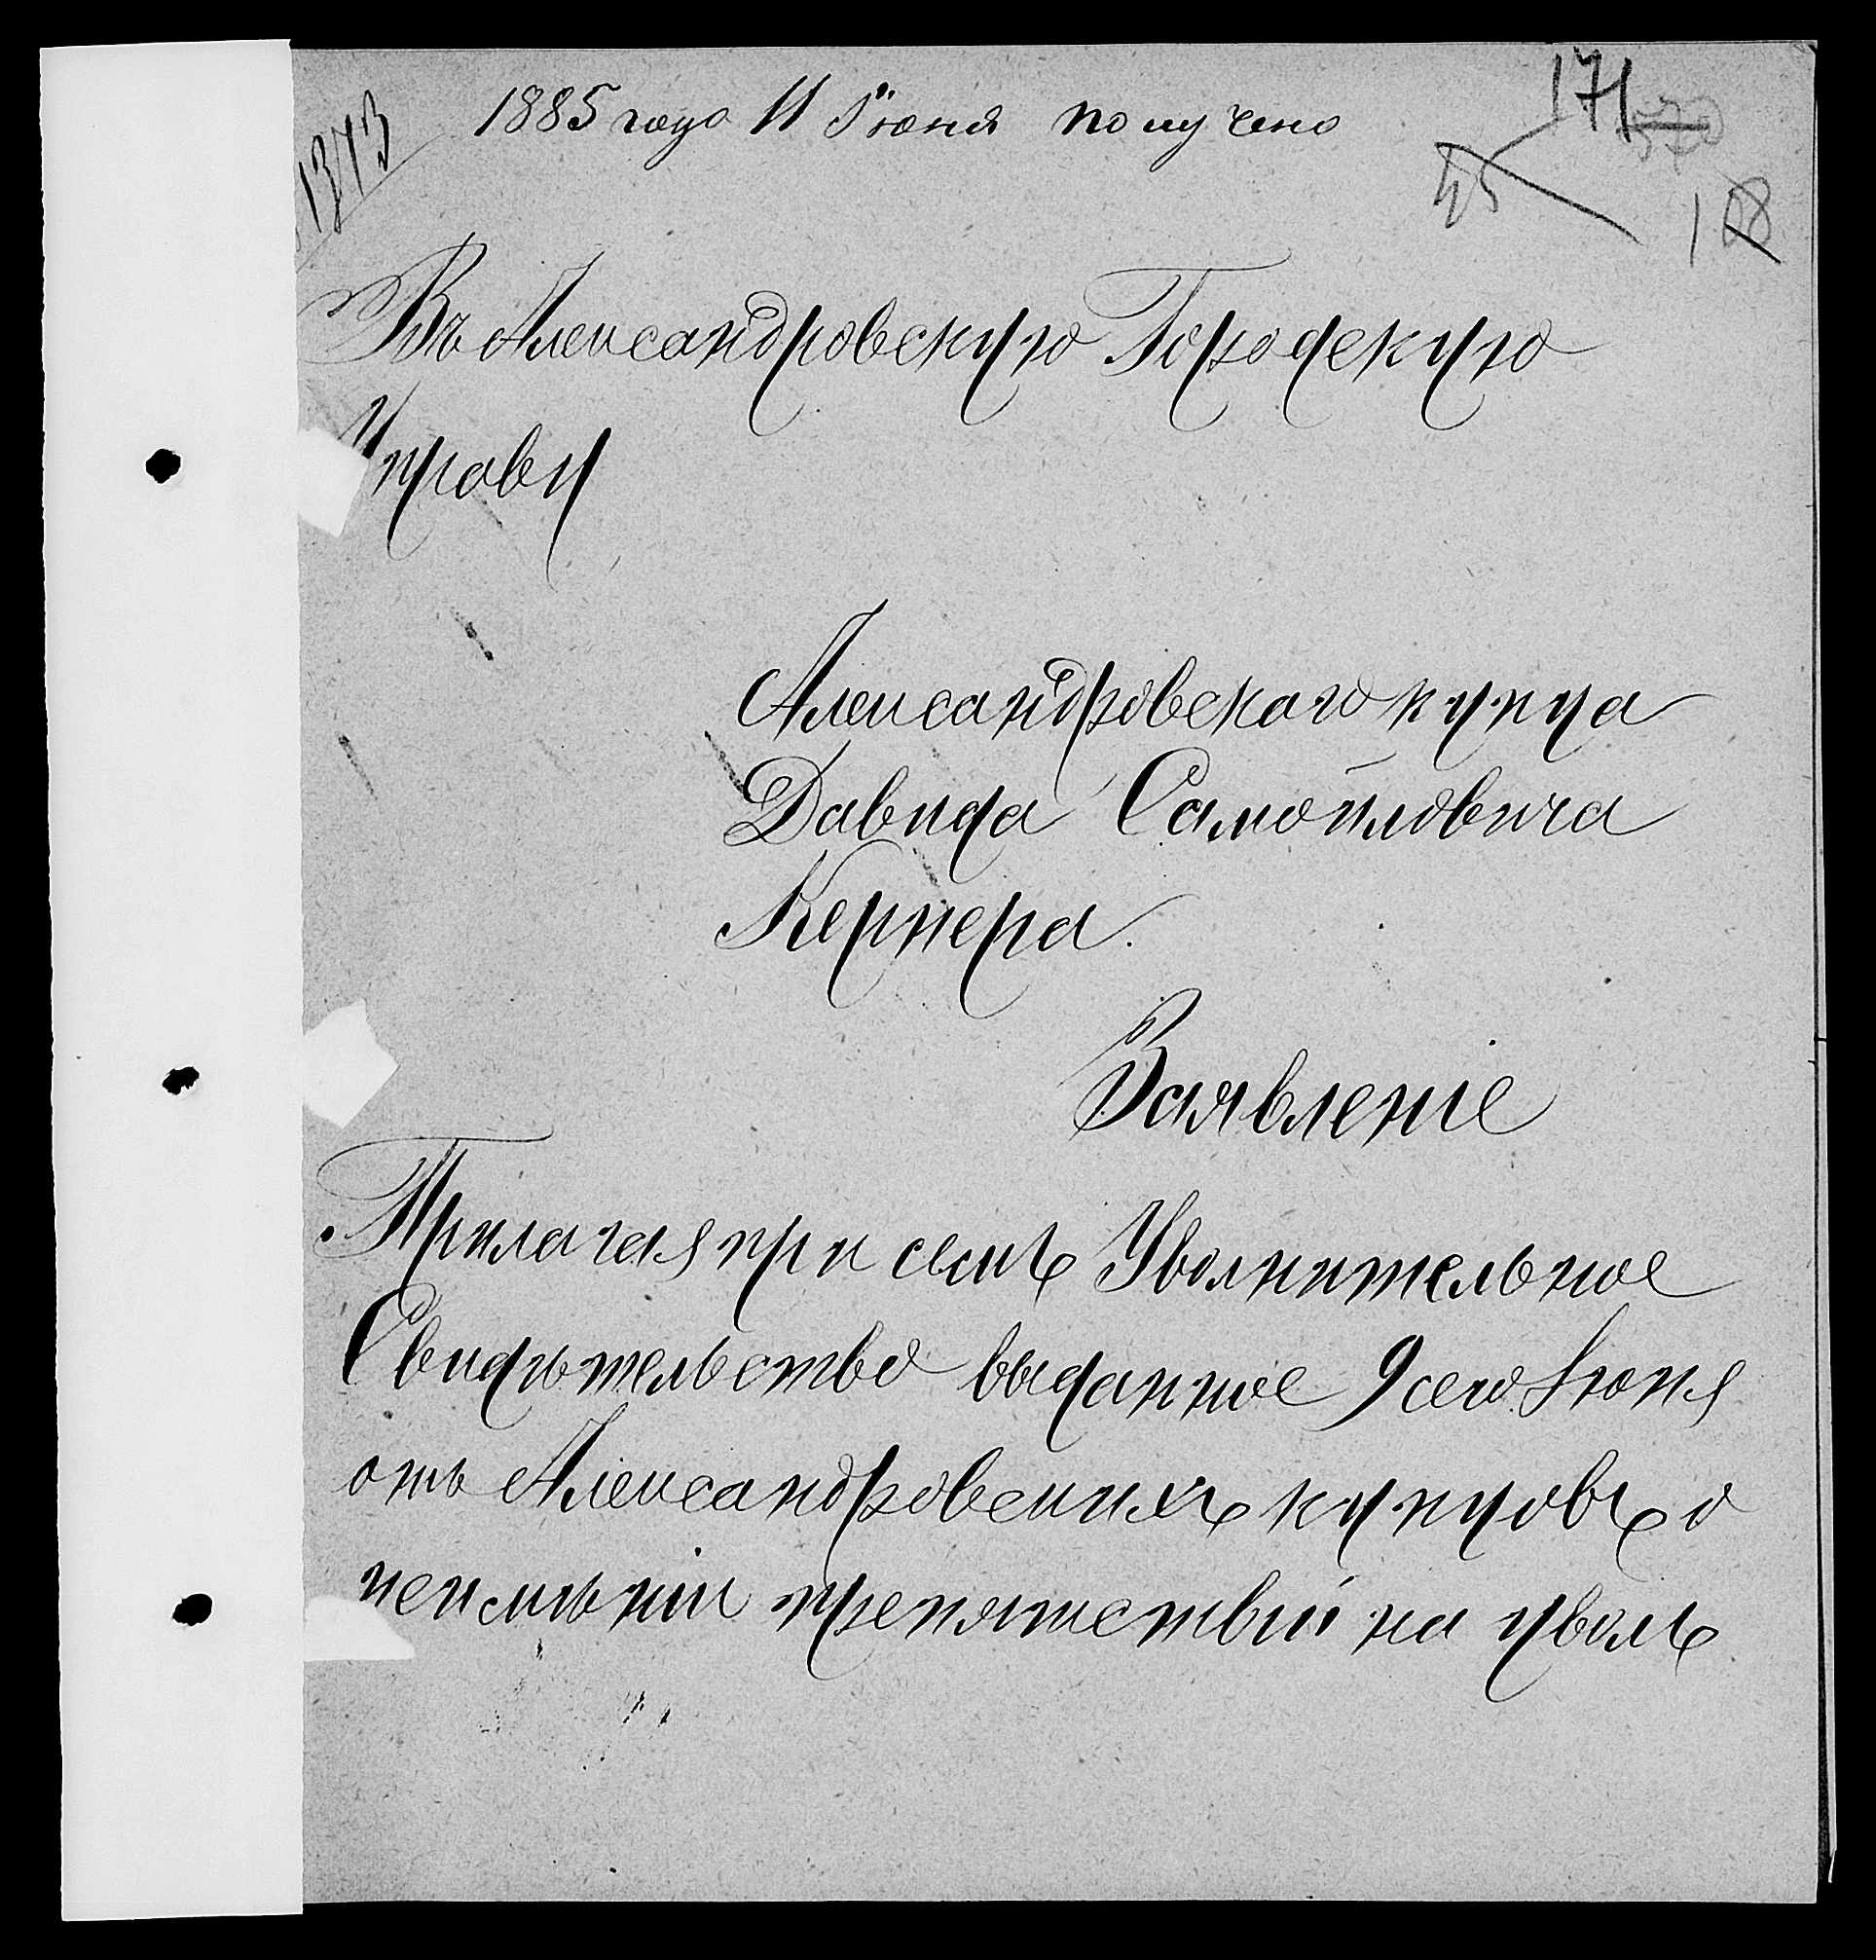 1885 года 11 Іюня получено
171
1373
45
108
Въ Александровскую Городскую
Управу
Александровскаго купца
Давида Самойловича
Кернера.
Заявленіе
Прилагая при семъ Увольнительное
Свидѣтельство выданное 9 сего Іюня
отъ Александровскихъ купцовъ о
неимѣніи препятствій на уволь